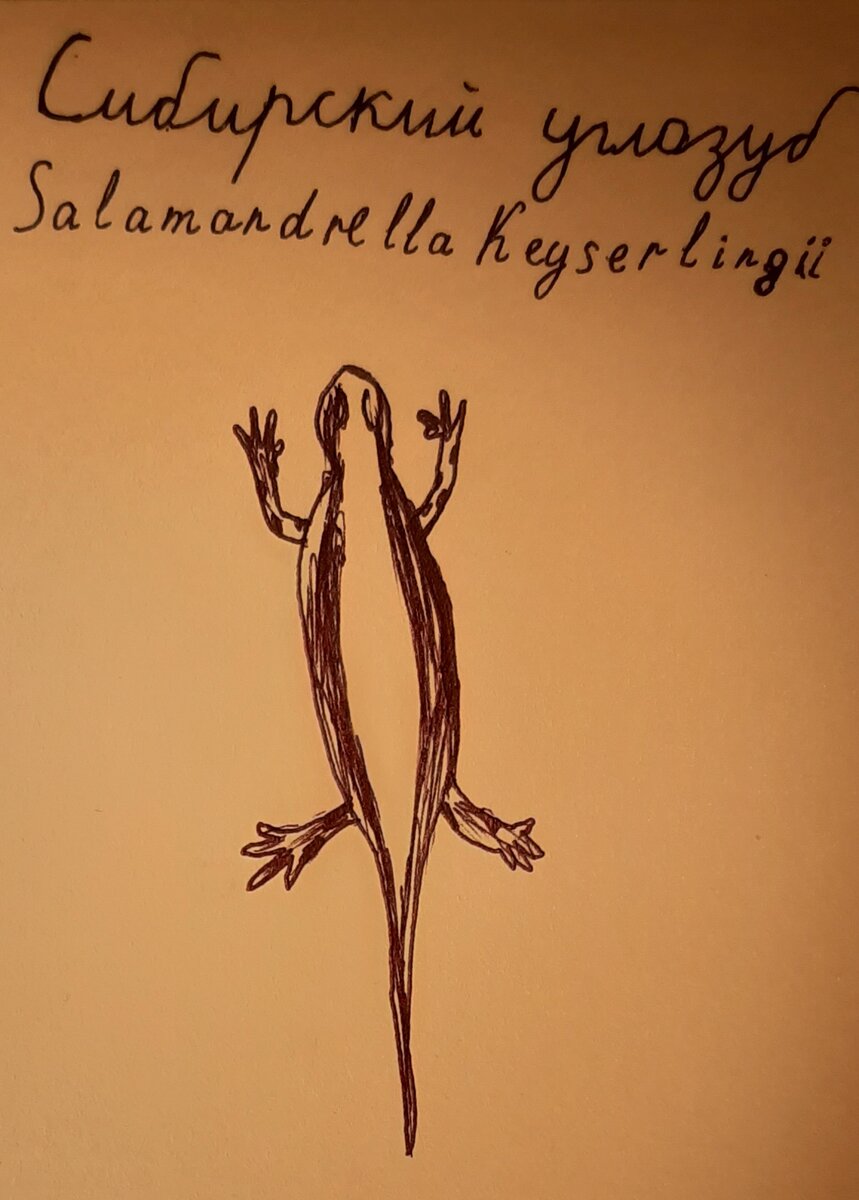 Сибирский углозуб
Salamandrella Keyserlingii